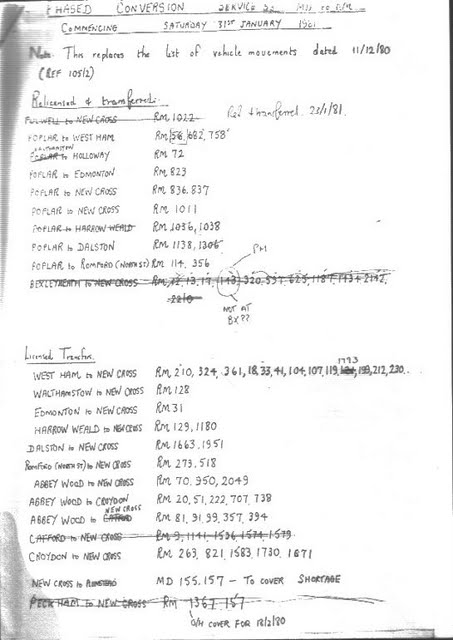 PHASED CONVERSION SERVICE 53 MD to RM
COMMENCING SATURDAY 31ST JANUARY 1981
Note. This replaces the list of vehicle movements dated 11/12/80
(REF 105/2)
Relicensed & transferred.
FULWELL to NEW CROSS RM 1022
Rel transferred 23/1/81.
POPLAR to WEST HAM RM 56, 682, 758
WALTHAMSTOW
POPLAR to HOLLOWAY RM 72
POPLAR to EDMONTON RM 823
POPLAR to NEW CROSS RM 836, 837
POPLAR to NEW CROSS RM 1011
POPLAR to HARROW WEALD RM 1036, 1038
POPLAR to DALSTON RM 1138, 1306
PM
POPLAR to ROMFORD (NORTH ST) RM 114, 356
BEXLEYHEATH to NEW CROSS RM 12, 13, 17, 1143, 320, 597, 625, 1187, 1434, 2142,
2210
NOT AT
BX??
Licensed Transfer.
1793
WEST HAM to NEW CROSS RM 210, 324, 361, 18, 33, 41, 104, 107, 119, 199, 212, 230.
WALTHAMSTOW to NEW CROSS RM 128
EDMONTON to NEW CROSS RM 31
HARROW WEALD to NEW CROSS RM 129, 1180
DALSTON to NEW CROSS RM 1663, 1951
ROMFORD (NORTH ST) to NEW CROSS RM 273, 518
ABBEY WOOD to NEW CROSS RM 70, 950, 2049
ABBEY WOOD to CROYDON RM 20, 51, 222, 707, 738
NEW CROSS
ABBEY WOOD to CATFORD RM 81, 91, 99, 357, 394
CATFORD to NEW CROSS RM 9, 1141, 1536, 1574, 1579
CROYDON to NEW CROSS RM 263, 821, 1583, 1730, 1871
NEW CROSS to PLUMSTEAD MD 155, 157 - To COVER SHORTAGE
PECKHAM to NEW CROSS RM 1367, 167
O/H COVER FOR 18/2/80